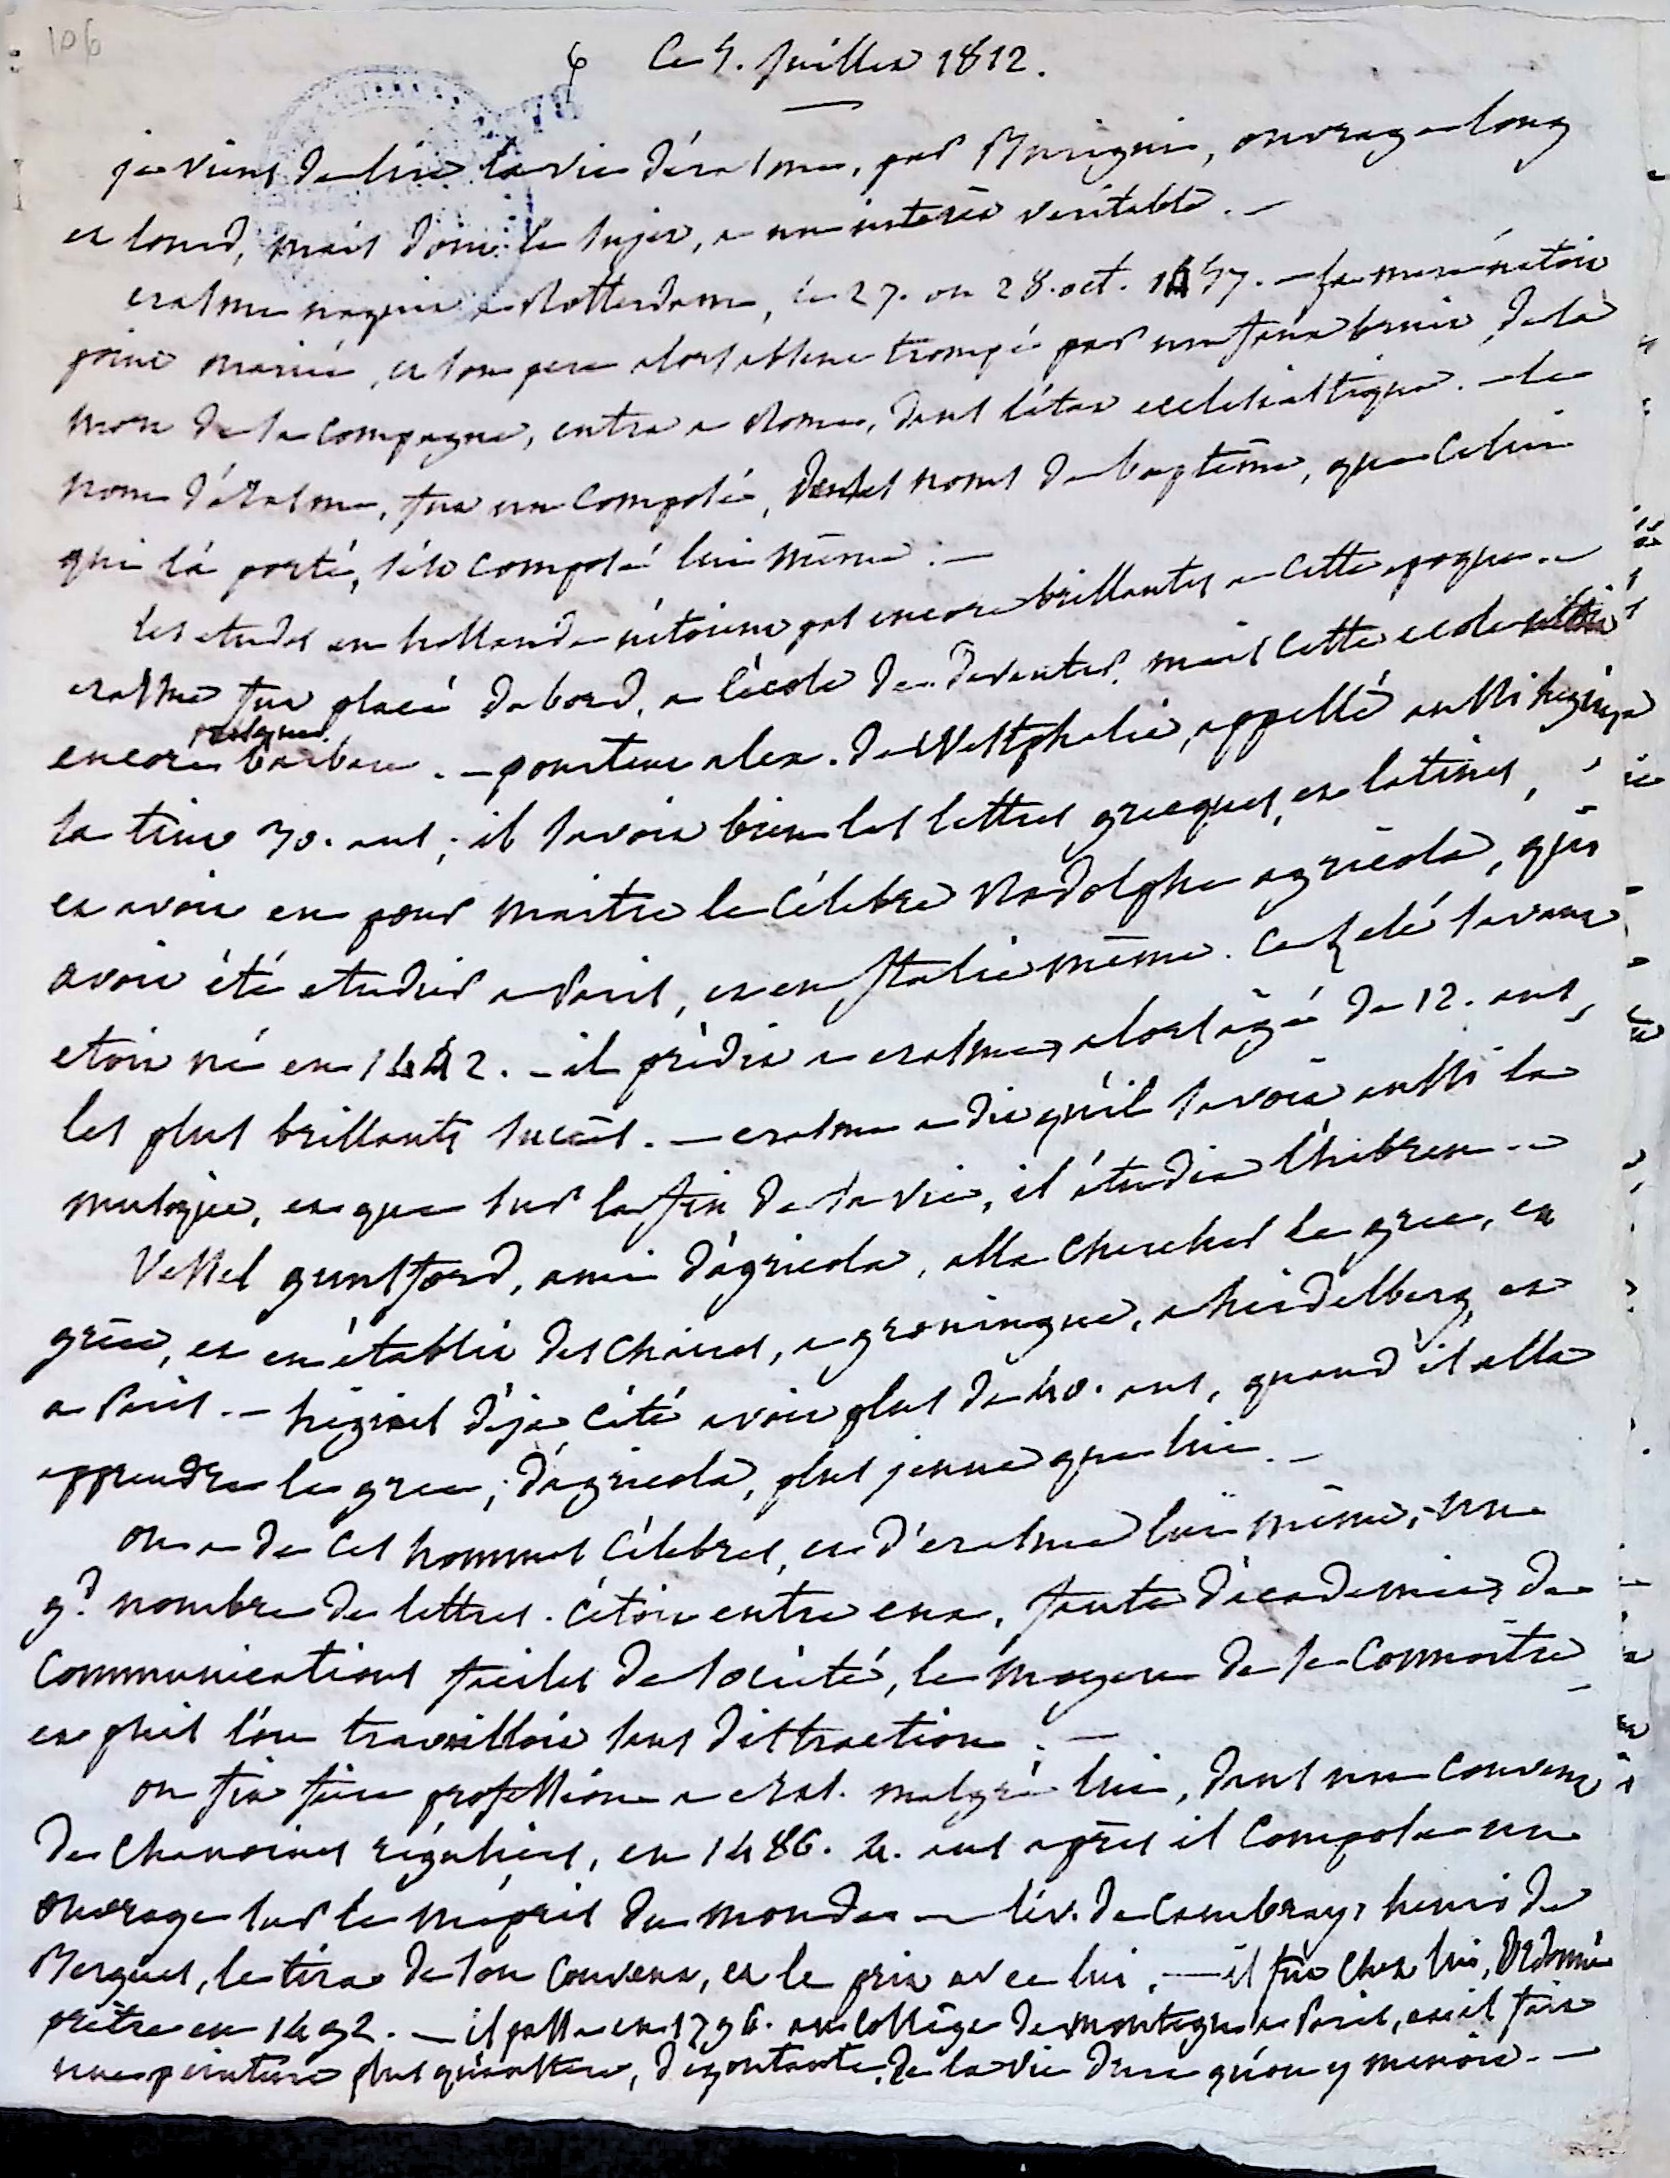 106
Ce 5. Juillet 1812.
je viens de lire la vie d'érasme, par Burigni, ouvrage long
et lourd, mais dont le sujet, a un intérêt veritable. —
erasme naquit a Rotterdam, le 27. ou 28. oct. 1457. — sa mere n'étoit
point mariée, et son pere alors absent trompé par un faux bruit, de la
mort de sa compagne, entra a Rome, dans l'état ecclesiastique. — le
nom d'érasme, fut un composé, de ses noms de baptême, que celui
qui l'a porté, s'est composé lui même. —
les etudes en hollande n'étoient pas encore brillantes a cette epoque. —
erasme fut placé dabord, a l'école de deventer, mais cette ecole étoit
encore presque barbare. — pourtant alex. de Westphalie, appellé aussi hegius
la tint 30. ans; il savoit bien les lettres grecques, et latines,
et avoit eu pour maitre le célebre Rodolphe agricola, qui
avoit été etudier a Paris, et en Italie même. Ce zelé savant
etoit né en 1442. — il prédit a erasme, alors âgé de 12. ans,
les plus brillants succès. — erasme a dit qu'il savoit aussi la
musique, et que sur la fin de sa vie, il étudia l'hébreu. —
Vessel gansford, ami d'agricola, alla chercher le grec, en
grèce, et en établit des chaires, a groningue, a heidelberg, et
a Paris. — hégius déja cité avoit plus de 40. ans, quand il alla
apprendre le grec, d'agricola, plus jeune que lui. —
on a de ces hommes célebres, et d'erasme lui même, un
gd. nombre de lettres. c'étoit entre eux, faute d'academies, de
communications faciles de société, le moyen de se connoître
et puis l'on travailloit sans distraction. —
on fit faire profession a eras. malgré lui, dans un couvent
de chanoines réguliers, en 1486. 4. ans après il composa un
ouvrage sur le mépris du monde — l'év. de Cambray, henri de
Bergues, le tira de son couvent, et le prit avec lui. — il fut chez lui, ordonné
prêtre en 1492. — il passa en 1796. au collège de montegu a Paris, et il fait
une peinture plus qu'austere, dégoutante, de la vie dure qu'on y menoit. —